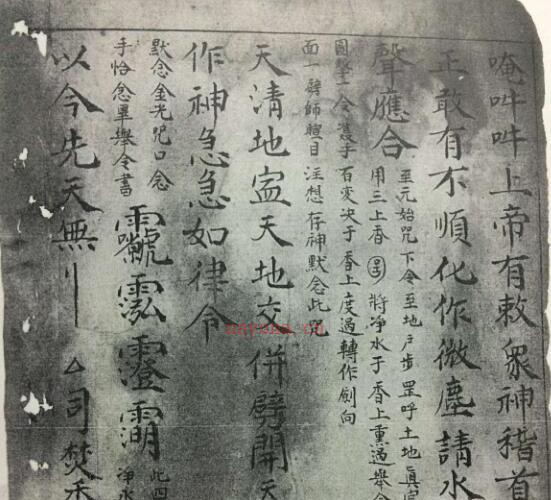 唵吽吽上帝有敕衆神稽首
正敢有不順化作微塵請水
聲應合 至元始咒下令至地戶步罡呼土地眞
用三上香 將净水于香上熏過舉
圓擎一令 手百变决于香上度過轉作劍向
面一劈師 目注想存神默念此咒
天清地 天地交併劈開天
作神急急如律令
默念金光咒口念
手 念畢舉令書
此四
净水
以今先天無 司焚香
nayona.cn